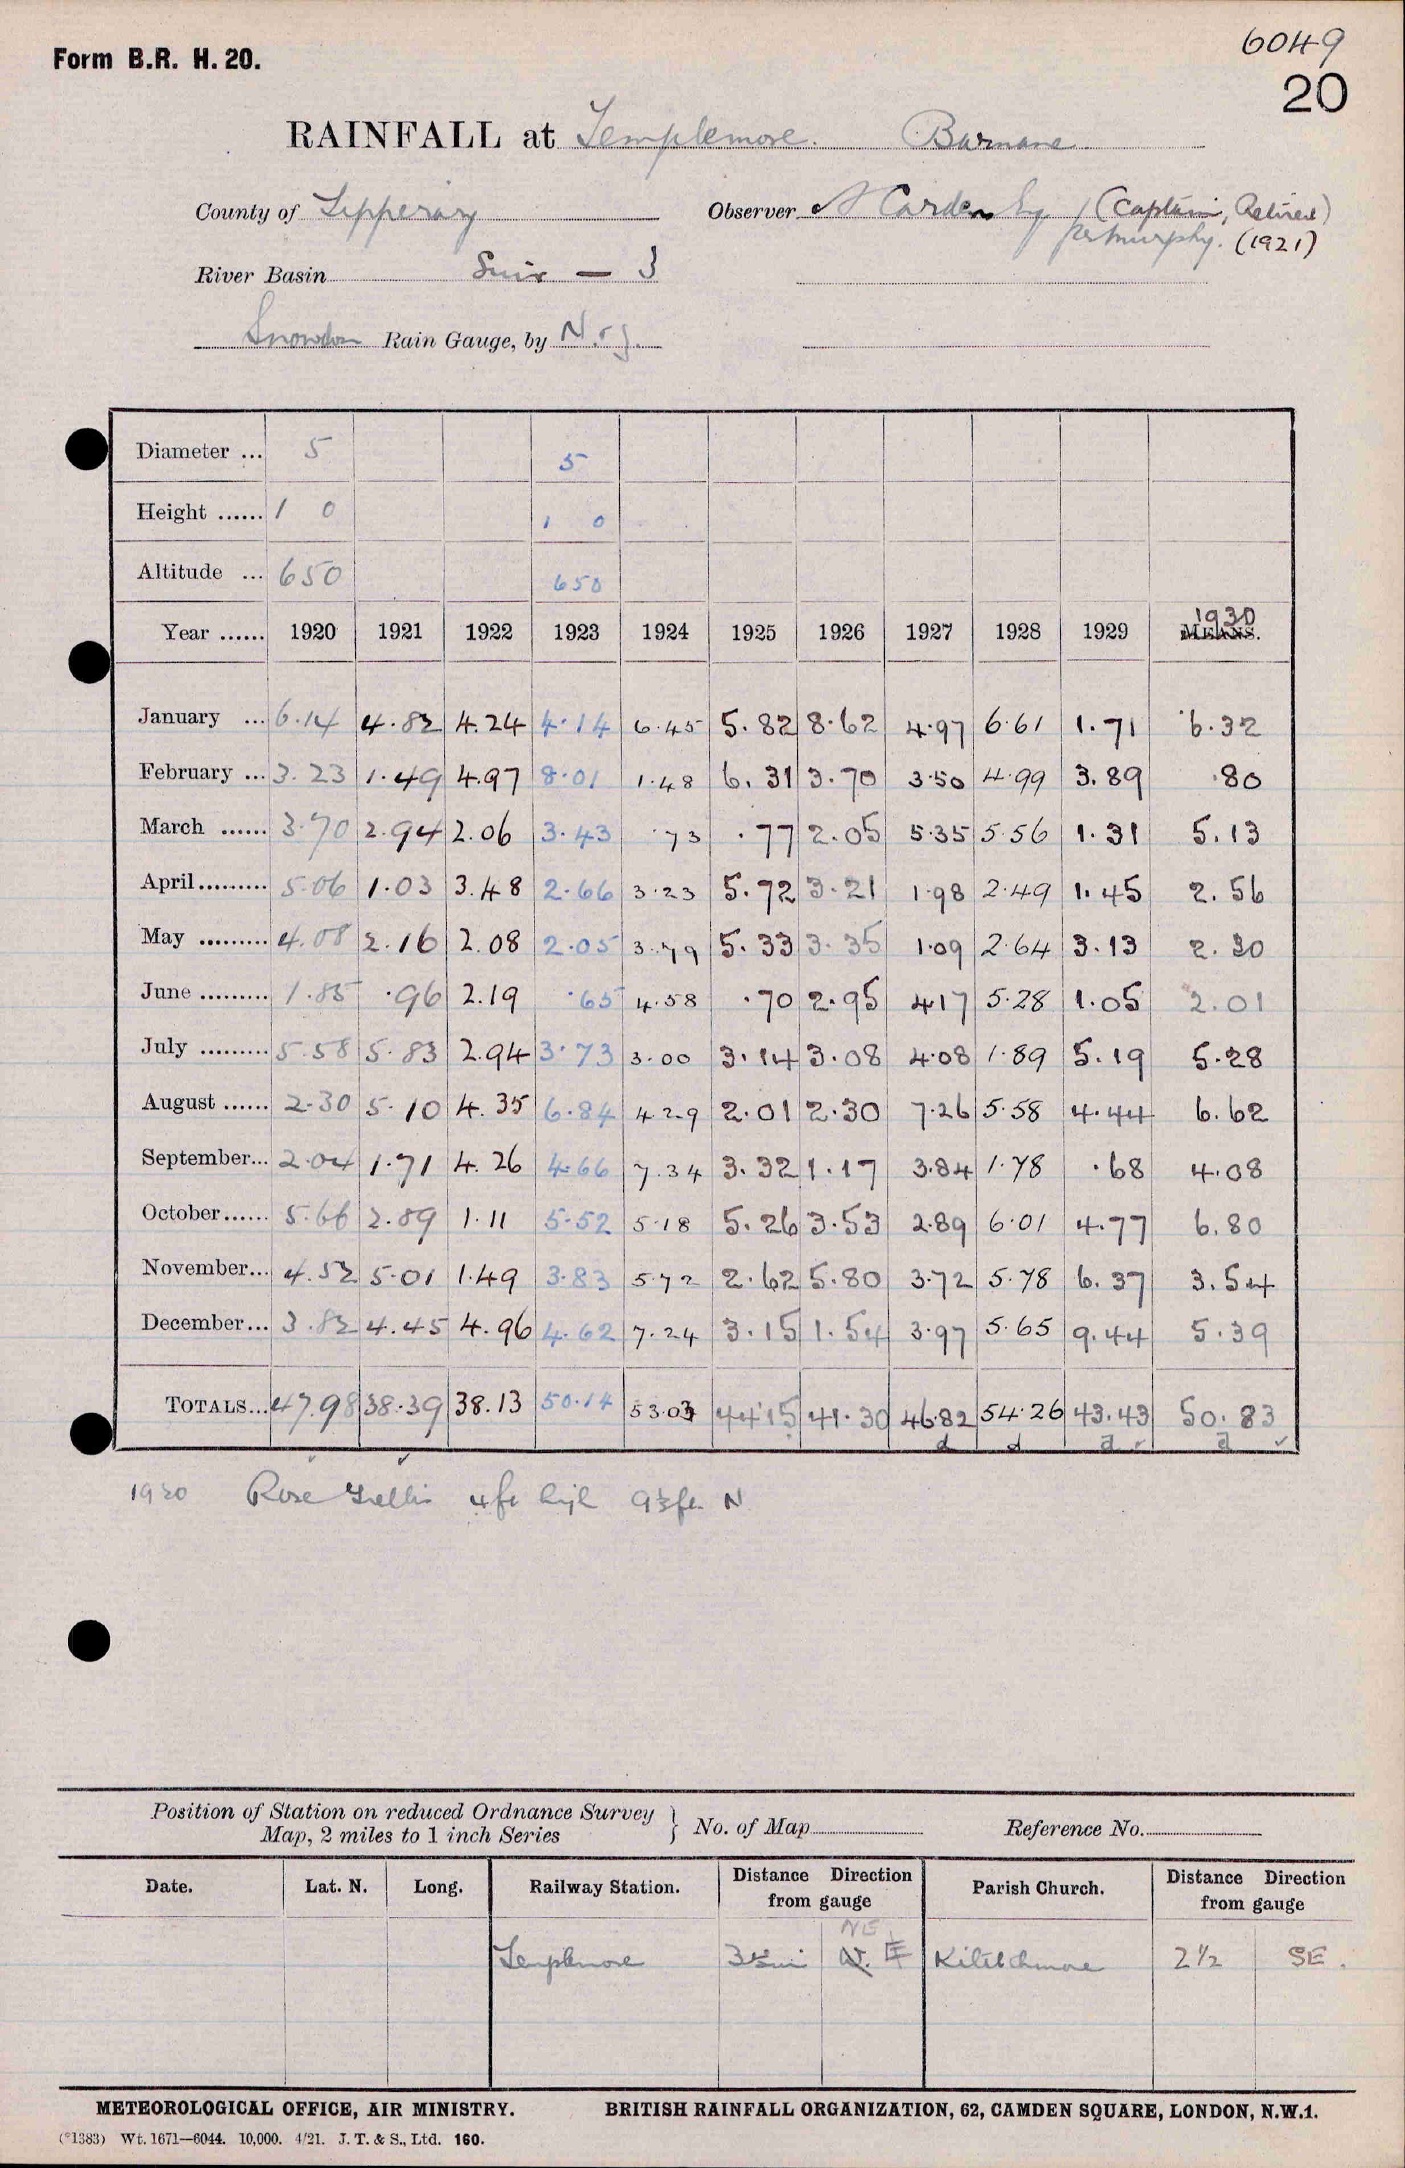 6049
Form B.R. H. 20.
20
RAINFALL at Templemore. Barnane
County of Tipperary Observer A Carden Esq (Captain, Retired)
per Murphy. (1921)
River Basin Suir — 3
Snowdon Rain Gauge, by N. & Z.
Diameter ... 5 5
Height ...... 1 0 1 0
Altitude ... 650 650
1930
Year ...... 1920 1921 1922 1923 1924 1925 1926 1927 1928 1929 MEANS.
January ... 6.14 4.82 4.24 4.14 6.45 5.82 8.62 4.97 6.61 1.71 6.32
February ... 3.23 1.49 4.97 8.01 1.48 6.31 3.70 3.50 4.99 3.89 .80
March ...... 3.70 2.94 2.06 3.43 .73 .77 2.05 5.35 5.56 1.31 5.13
April ......... 5.06 1.03 3.48 2.66 3.23 5.72 3.21 1.98 2.49 1.45 2.56
May ......... 4.08 2.16 2.08 2.05 3.79 5.33 3.35 1.09 2.64 3.13 2.30
June ......... 1.85 .96 2.19 .65 4.58 .70 2.95 4.17 5.28 1.05 2.01
July ......... 5.58 5.83 2.94 3.73 3.00 3.14 3.08 4.08 1.89 5.19 5.28
August ...... 2.30 5.10 4.35 6.84 4.29 2.01 2.30 7.26 5.58 4.44 6.62
September... 2.04 1.71 4.26 4.66 7.34 3.32 1.17 3.84 1.78 .68 4.08
October...... 5.66 2.89 1.11 5.52 5.18 5.26 3.53 2.89 6.01 4.77 6.80
November... 4.52 5.01 1.49 3.83 5.72 2.62 5.80 3.72 5.78 6.37 3.54
December... 3.82 4.45 4.96 4.62 7.24 3.15 1.54 3.97 5.65 9.44 5.39
TOTALS... 47.98 38.39 38.13 50.14 53.03 44.15 41.30 46.82 54.26 43.43 50.83
d d a a
1920 Rose Trellis 4ft high 9½ft N
Position of Station on reduced Ordnance Survey } No. of Map Reference No.
Map, 2 miles to 1 inch Series
Date. Lat. N. Long. Railway Station. Distance Direction from gauge Parish Church. Distance Direction from gauge
NE
Templemore 3½mi N. E 2½ SE.
METEOROLOGICAL OFFICE, AIR MINISTRY. BRITISH RAINFALL ORGANIZATION, 62, CAMDEN SQUARE, LONDON, N.W.1.
(*1383) Wt. 1671—6044. 10,000. 4/21. J. T. & S., Ltd. 160.